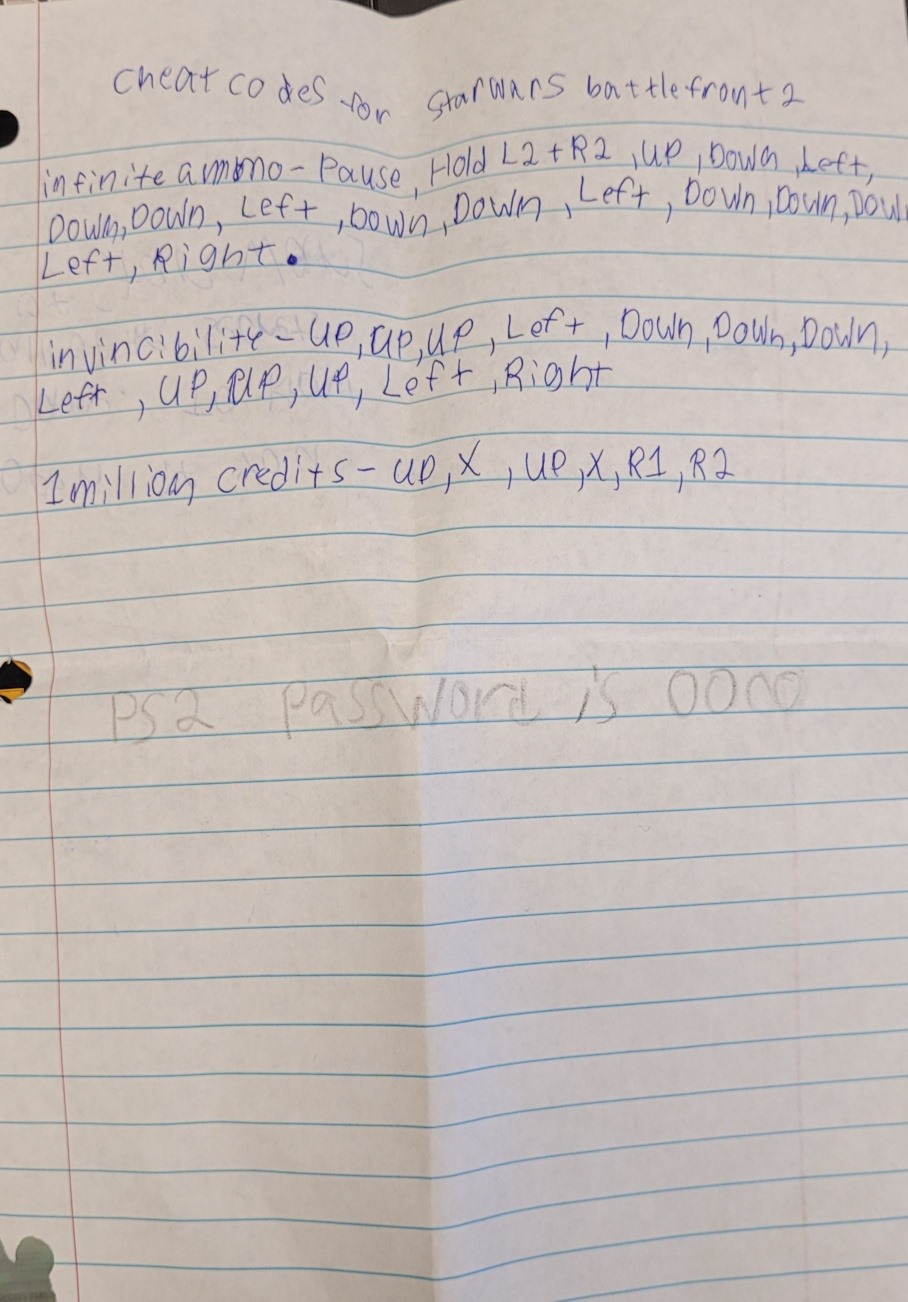 cheat codes for starwars battlefront 2
infinite ammo - Pause, Hold L2 + R2, UP, Down, Left,
Down, Down, Left, Down, Down, Left, Down, Down, Dow
Left, Right.
invincibility - UP, UP, UP, Left, Down, Down, Down,
Left, UP, UP, UP, Left, Right
1 million credits - UP, X, UP, X, R1, R2
PS2 Password is 0000